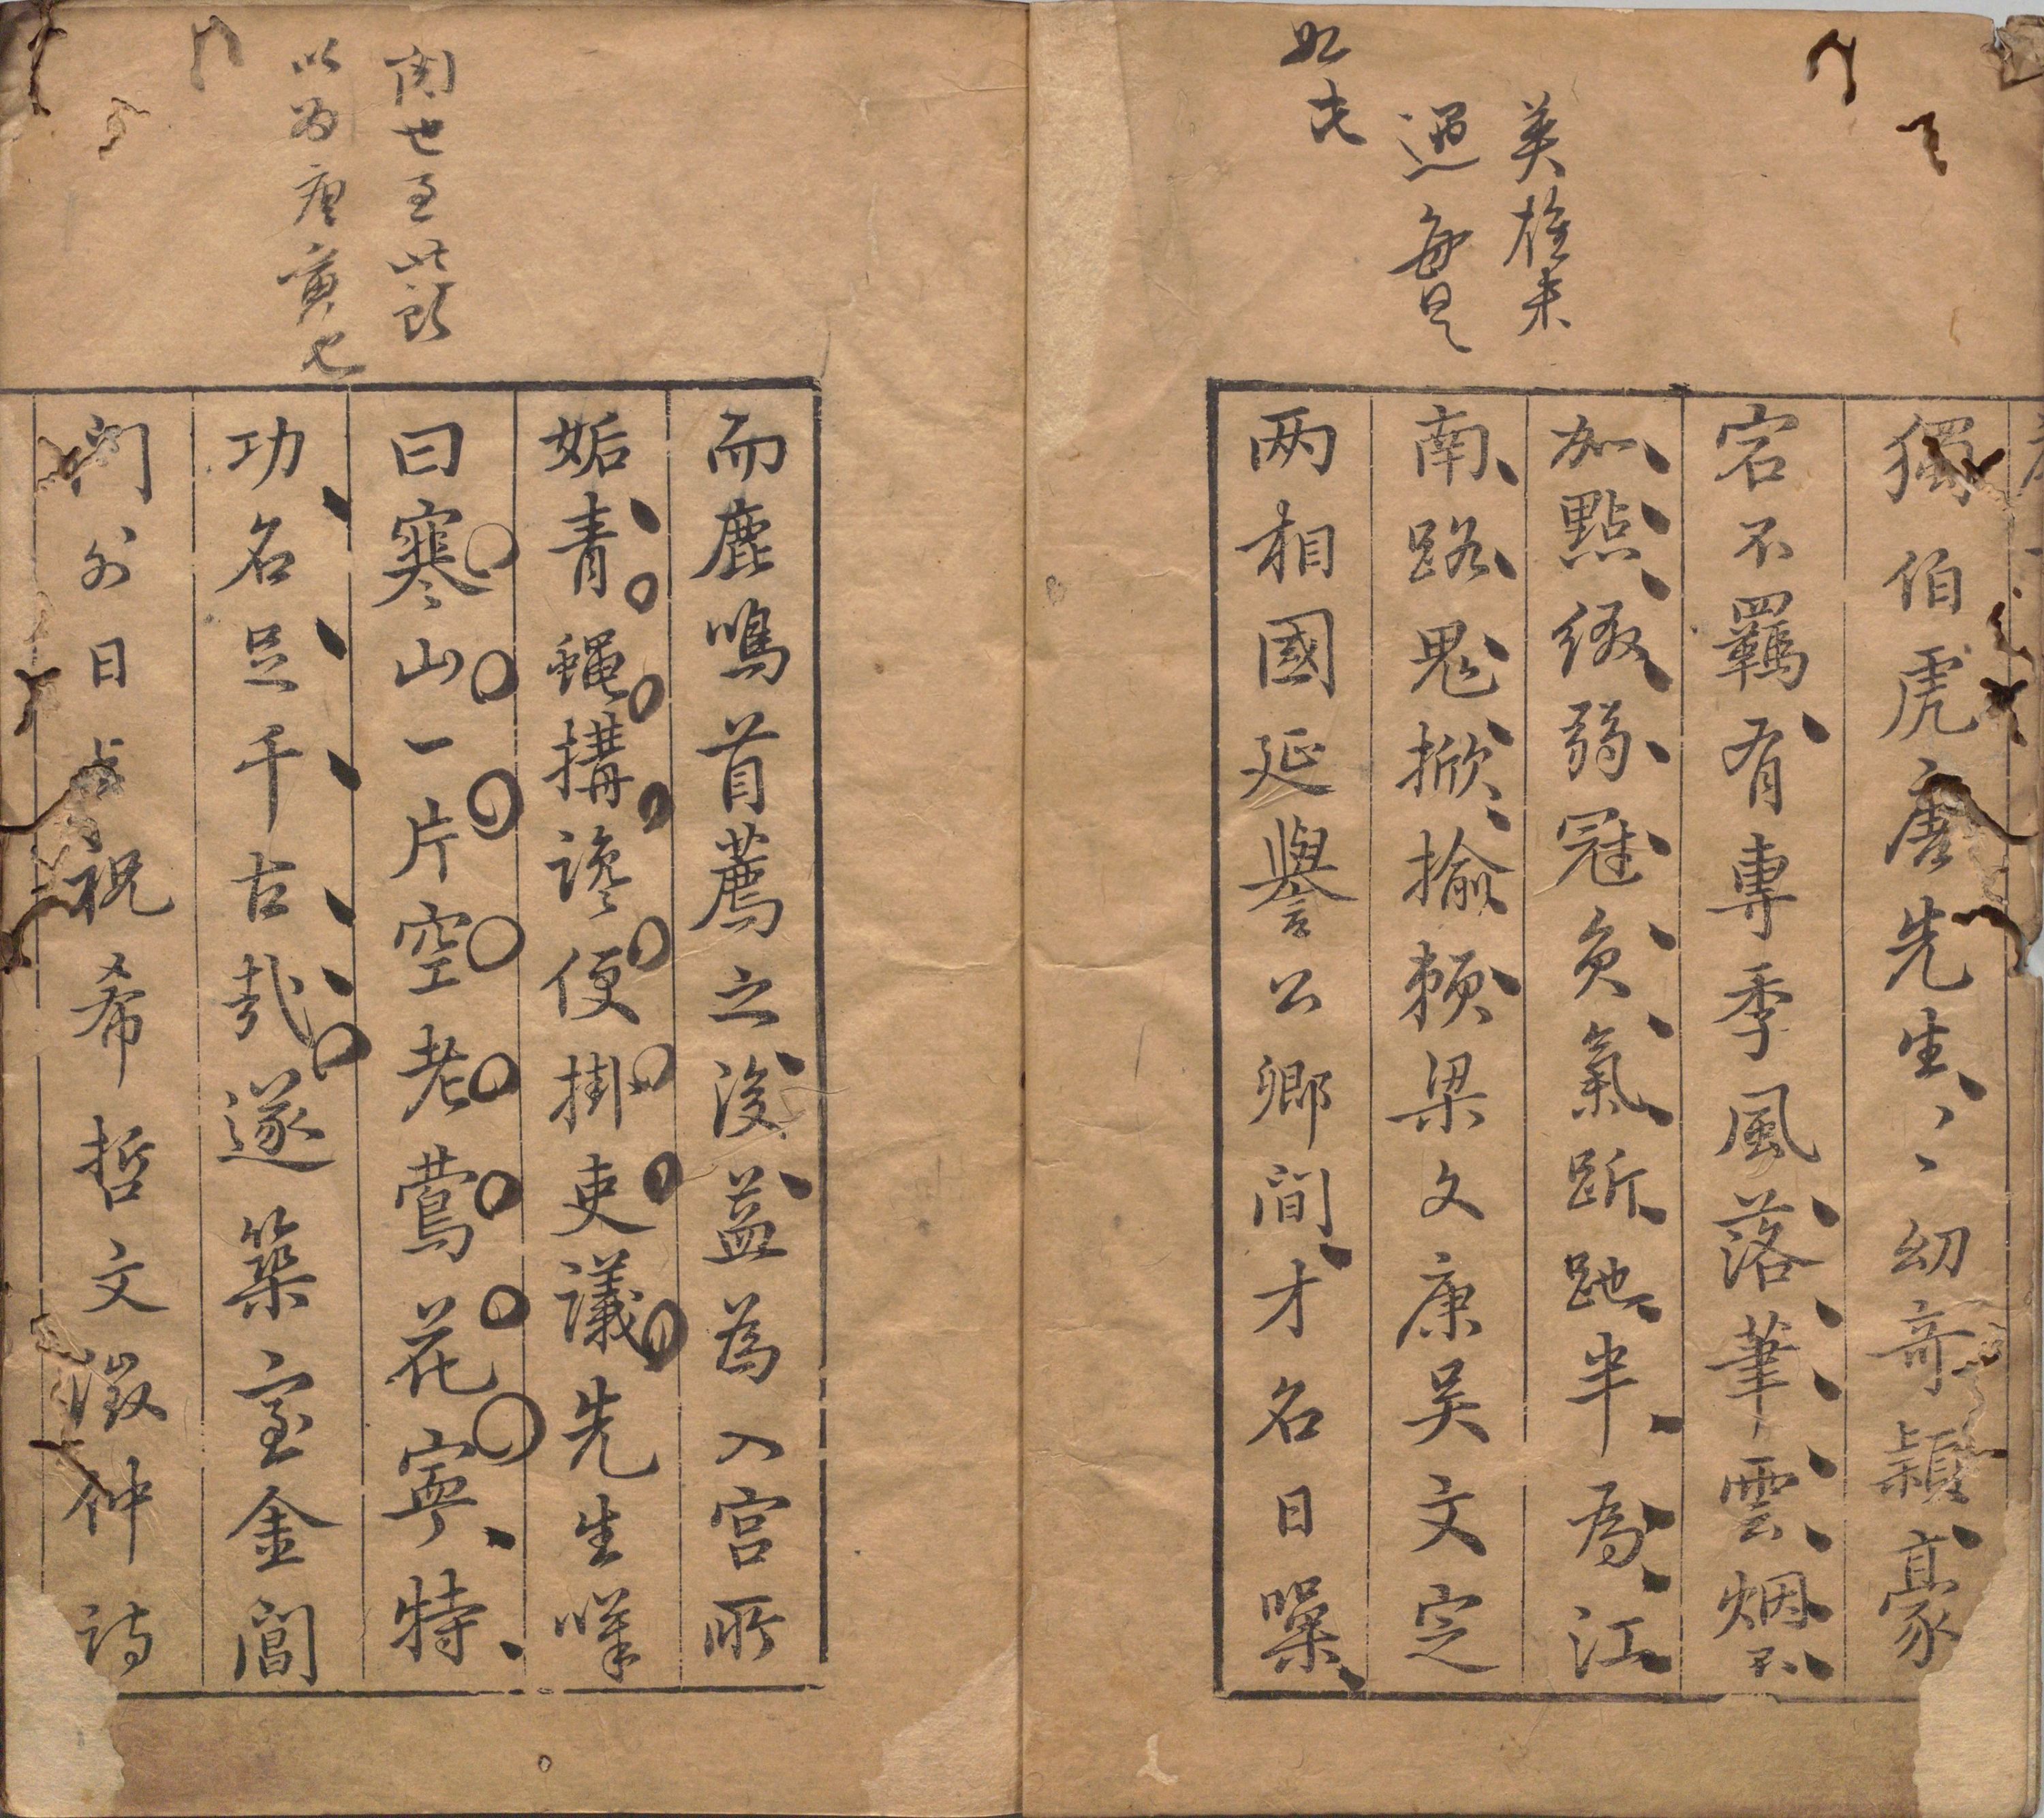 英雄未
遇每是
如此
獨伯虎唐先生、、幼奇穎豪
宕不羈有專季風落筆雲烟不
加點綴弱冠負氣跅跎半為江
南路鬼揶揄賴梁文康吴文定
两相國延譽公卿間才名日噪
以為唐寅也
而鹿鳴首薦之後益為入宫所
妬青蠅搆讒便掛吏議先生嘆
曰寒山一片空老鶯花寧特
功名足千古哉遂築室金閶
門外日與祝希哲文徵仲詩